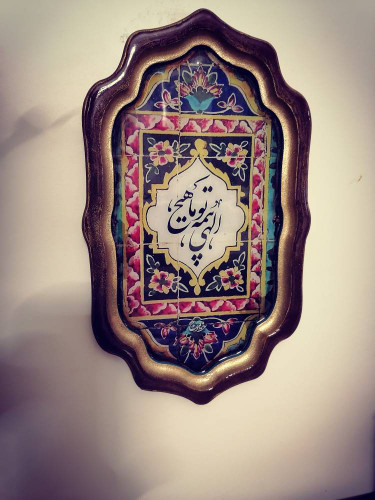 الهی همه تو ما هیچ